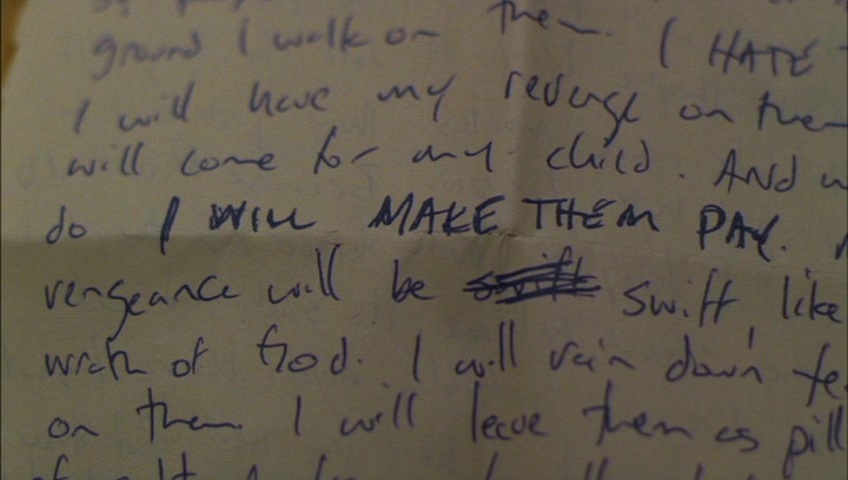 ground I walk on them. I HATE
I will have my revenge on them
will come for my child. AND
do I WILL MAKE THEM PAY.
vengeance will be swift swift, like
wrath of God. I will rain down
on them I will leave them as